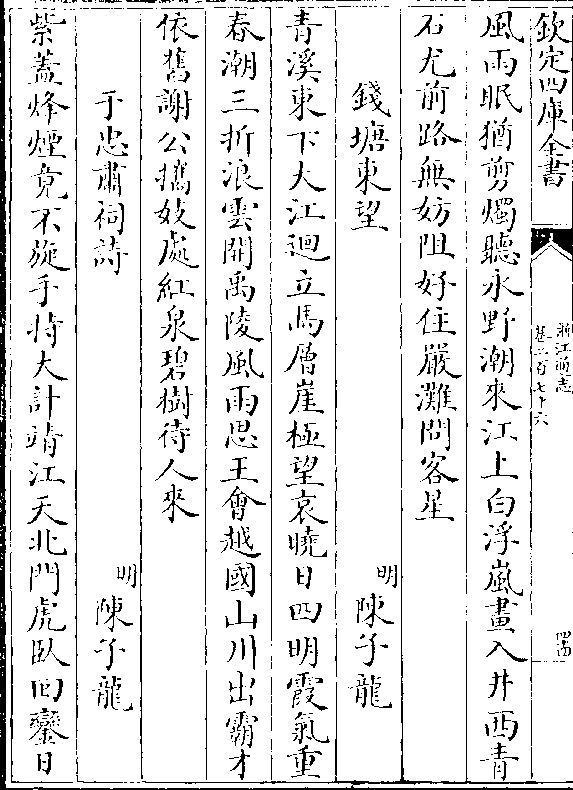 欽定四庫全書
浙江通志
卷二百七十六
四
風雨眠猶剪燭聽永野潮來江上白浮嵐畫入井西青
石尤前路無妨阻好住嚴灘問客星
錢塘東望
明 陳子龍
青溪東下大江迴立馬層崖極望哀曉日四明霞氣重
春潮三折浪雲開禹陵風雨思王會越國山川出霸才
依舊謝公攜妓處紅泉碧樹待人來
于忠肅祠詩
明 陳子龍
紫蓋烽煙竟不旋手持大計靖江天北門虎臥回鑾日